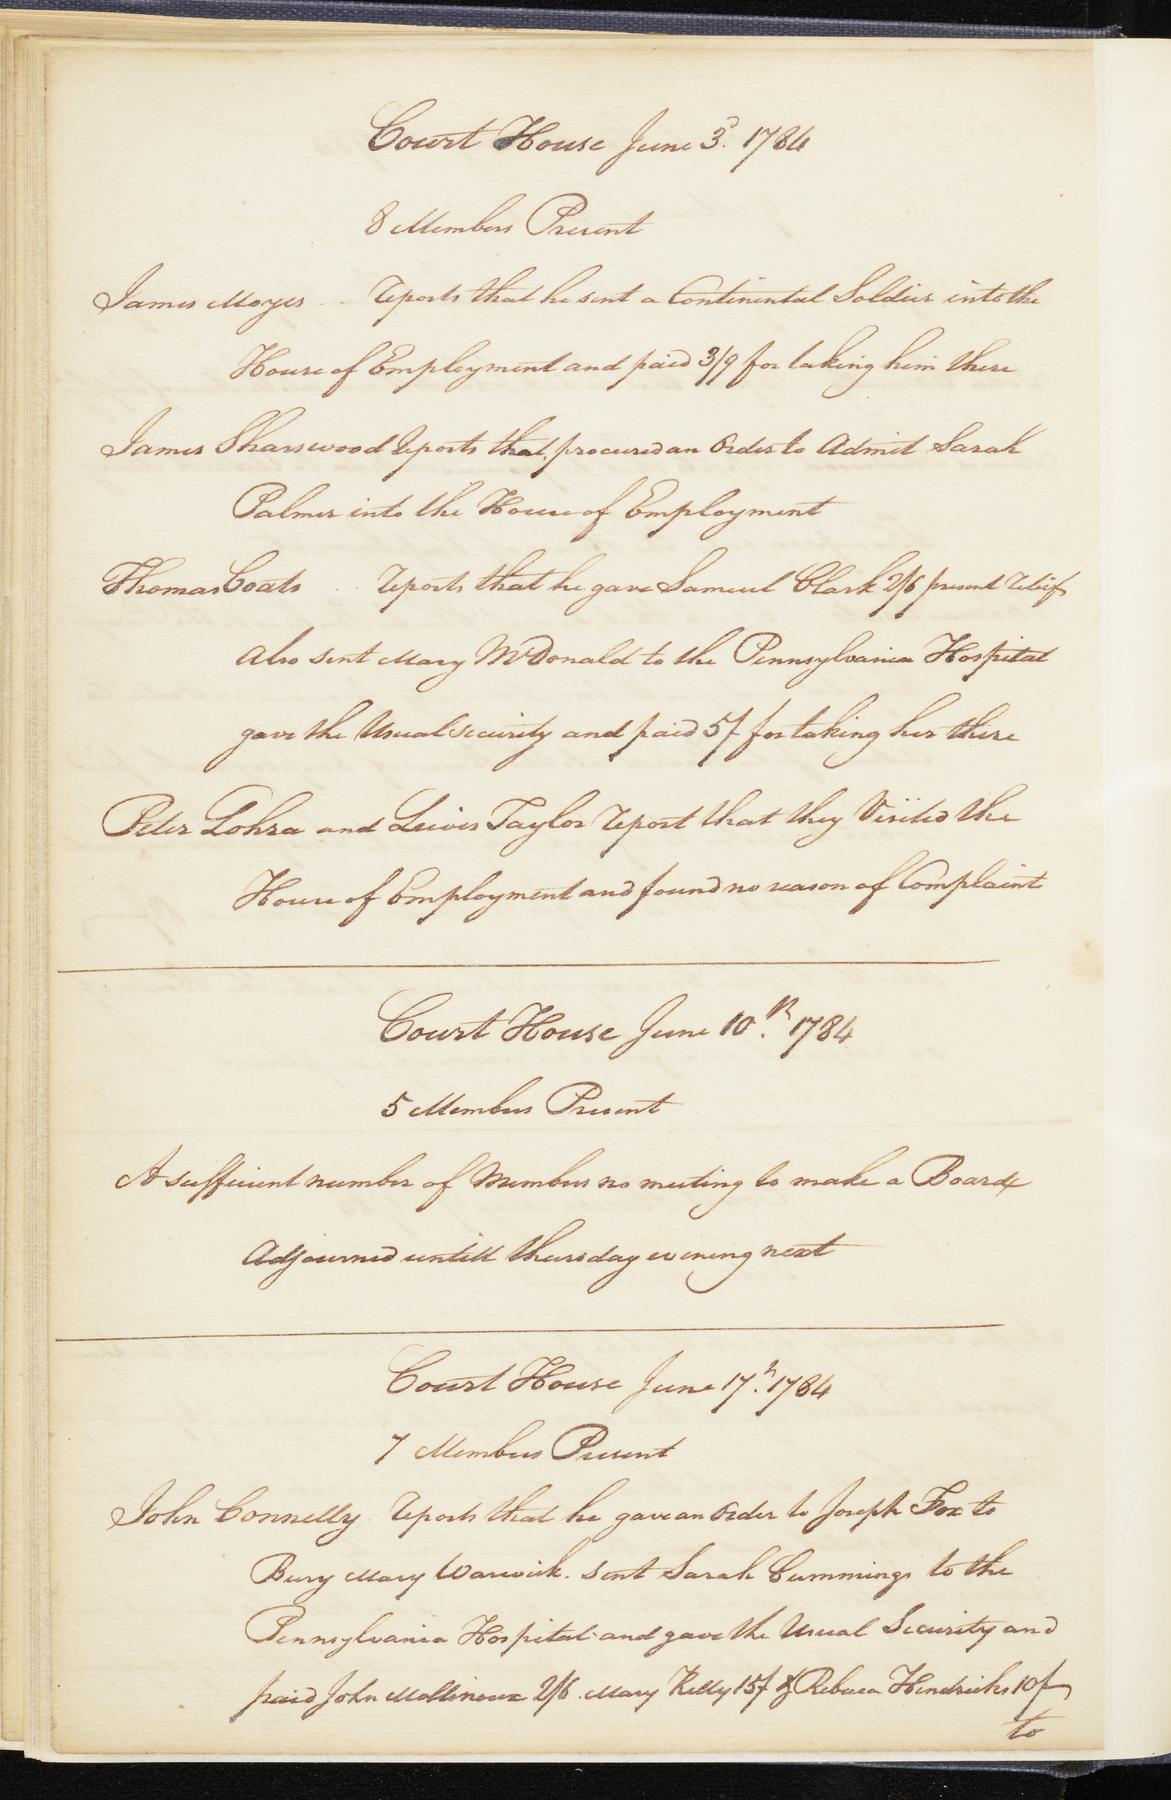 Court House June 3d. 1784
8 Members Present
James Moyes .. reports that he sent a Continental Soldier into the
House of Employment and paid 3/9 for taking him there
James Sharswood reports that, procured an Order to Admit Sarah
Palmer into the House of Employment
Thomas Coats .. reports that he gave Samuel Clark 2/6 present relief
Also sent Mary McDonald to the Pennsylvania Hospital
gave the Usual Security and paid 5/ for taking her there
Peter Lohra and Lewis Taylor report that they Visited the
House of Employment and found no reason of Complaint
Court House June 10th. 1784
5 Members Present
A sufficient number of Members no meeting to make a Board
Adjourned untill thursday evening next
Court House June 17th. 1784
7 Members Present
John Connelly reports that he gave an Order to Joseph Fox to
Bury Mary Warwick. sent Sarah Cummings to the
Pennsylvania Hospital and gave the Usual Security and
paid John Mollineux 2/6. Mary Kelly 15/ & Rebecca Hendricks 10/
to